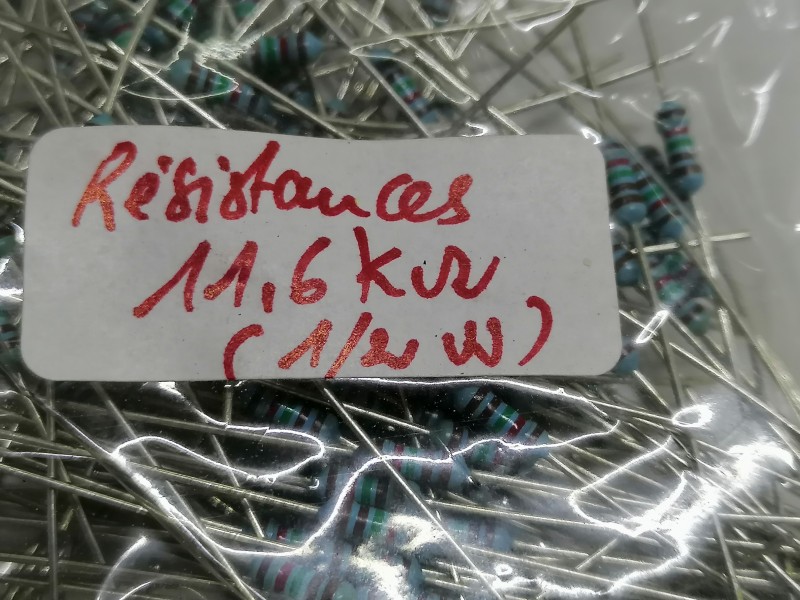 Résistances
11,6 kΩ
(1/2 W)